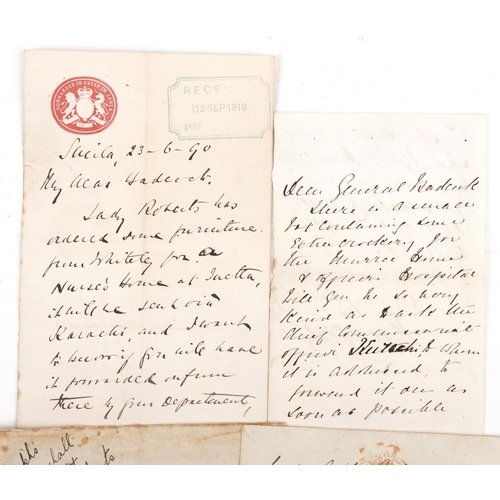 COMMANDER IN CHIEF IN INDIA
RECE
12 SEP 1918
Simla, 23-6-90
My dear Badcock,
Lady Roberts has
ordered some furniture
from Whiteley for a
Nurses Home at Quetta,
it will be sent via
Karachi, and I want
to know if you will have
it forwarded on from
there by your Department,
Dear General Badcock
There is a small
box containing some
extra crockery for
the Murree Home
& Officers Hospital
Will you be so very
kind as to ask the
chief Commissariat
officer to whom
it is addressed, to
forward it on as
soon as possible